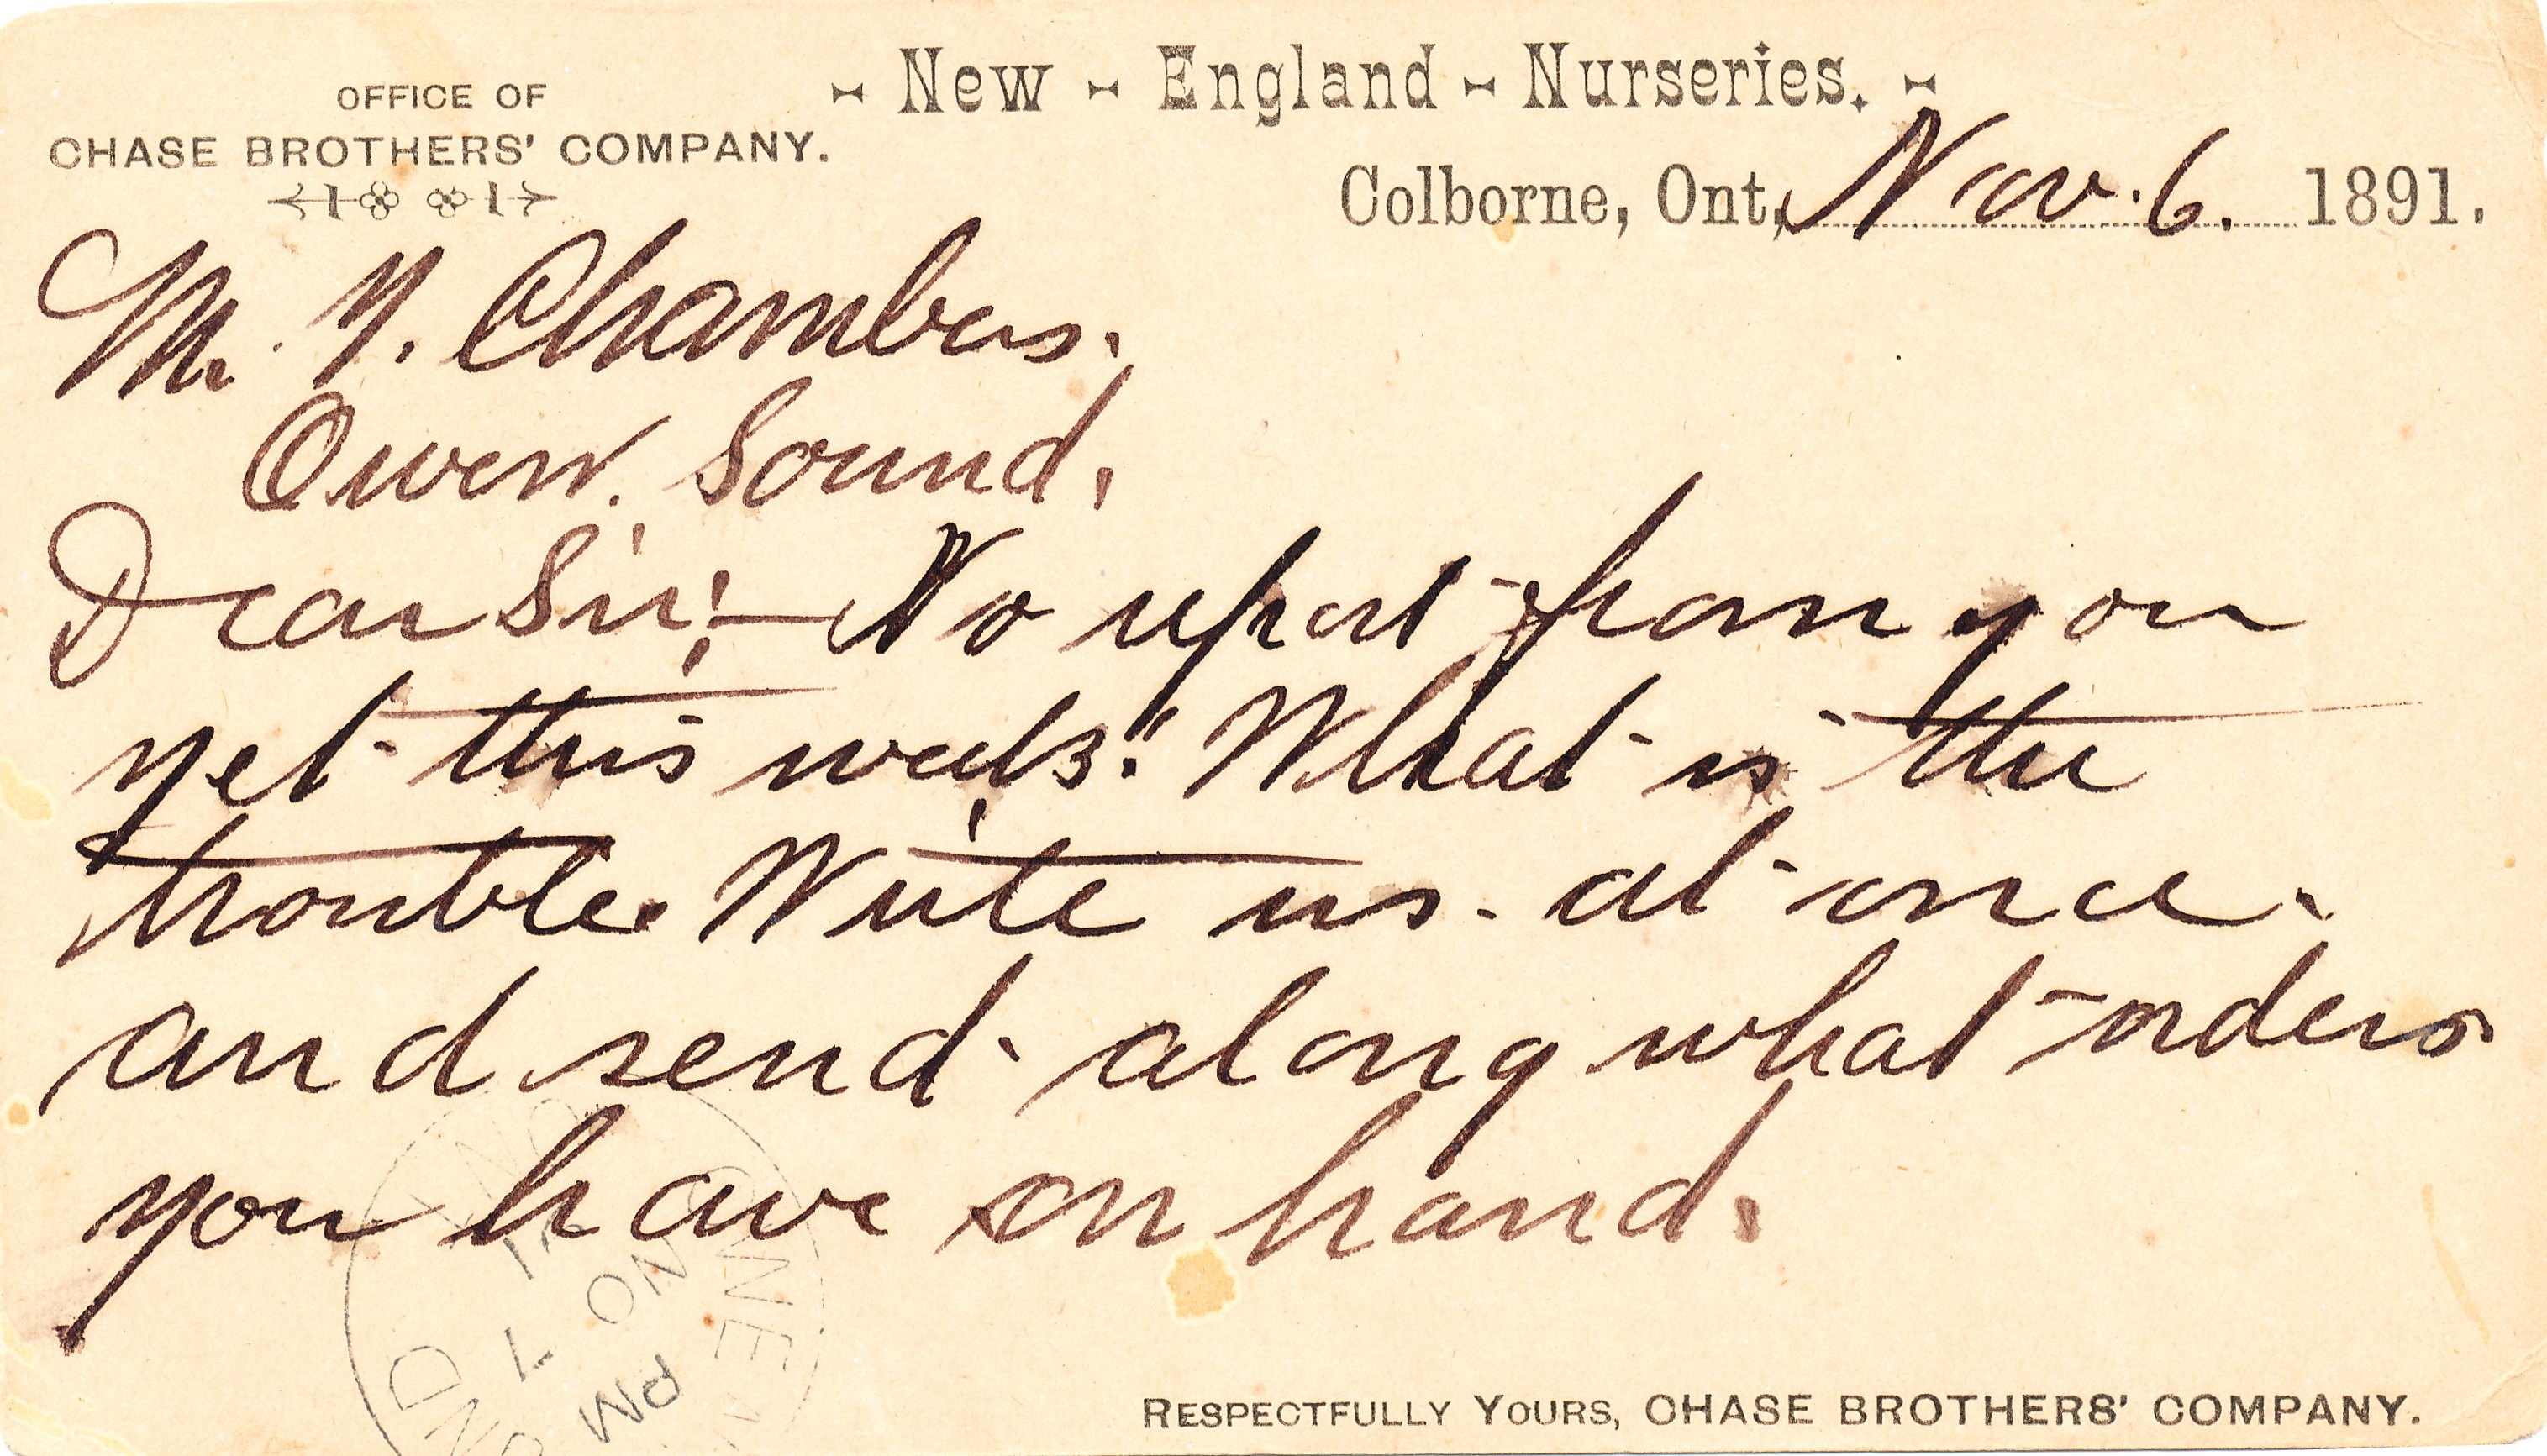 - New - England - Nurseries. -
OFFICE OF
CHASE BROTHERS' COMPANY.
Colborne, Ont, Nov. 6. 1891.
Mr. Y. Chambers.
Owen. Sound.
Dear Sir:— No report from you
yet this week. What is the
trouble. Write us. at once.
and send along what orders
you have on hand.
OWEN SOUND
ONT
NO 7
PM
RESPECTFULLY YOURS, CHASE BROTHERS' COMPANY.